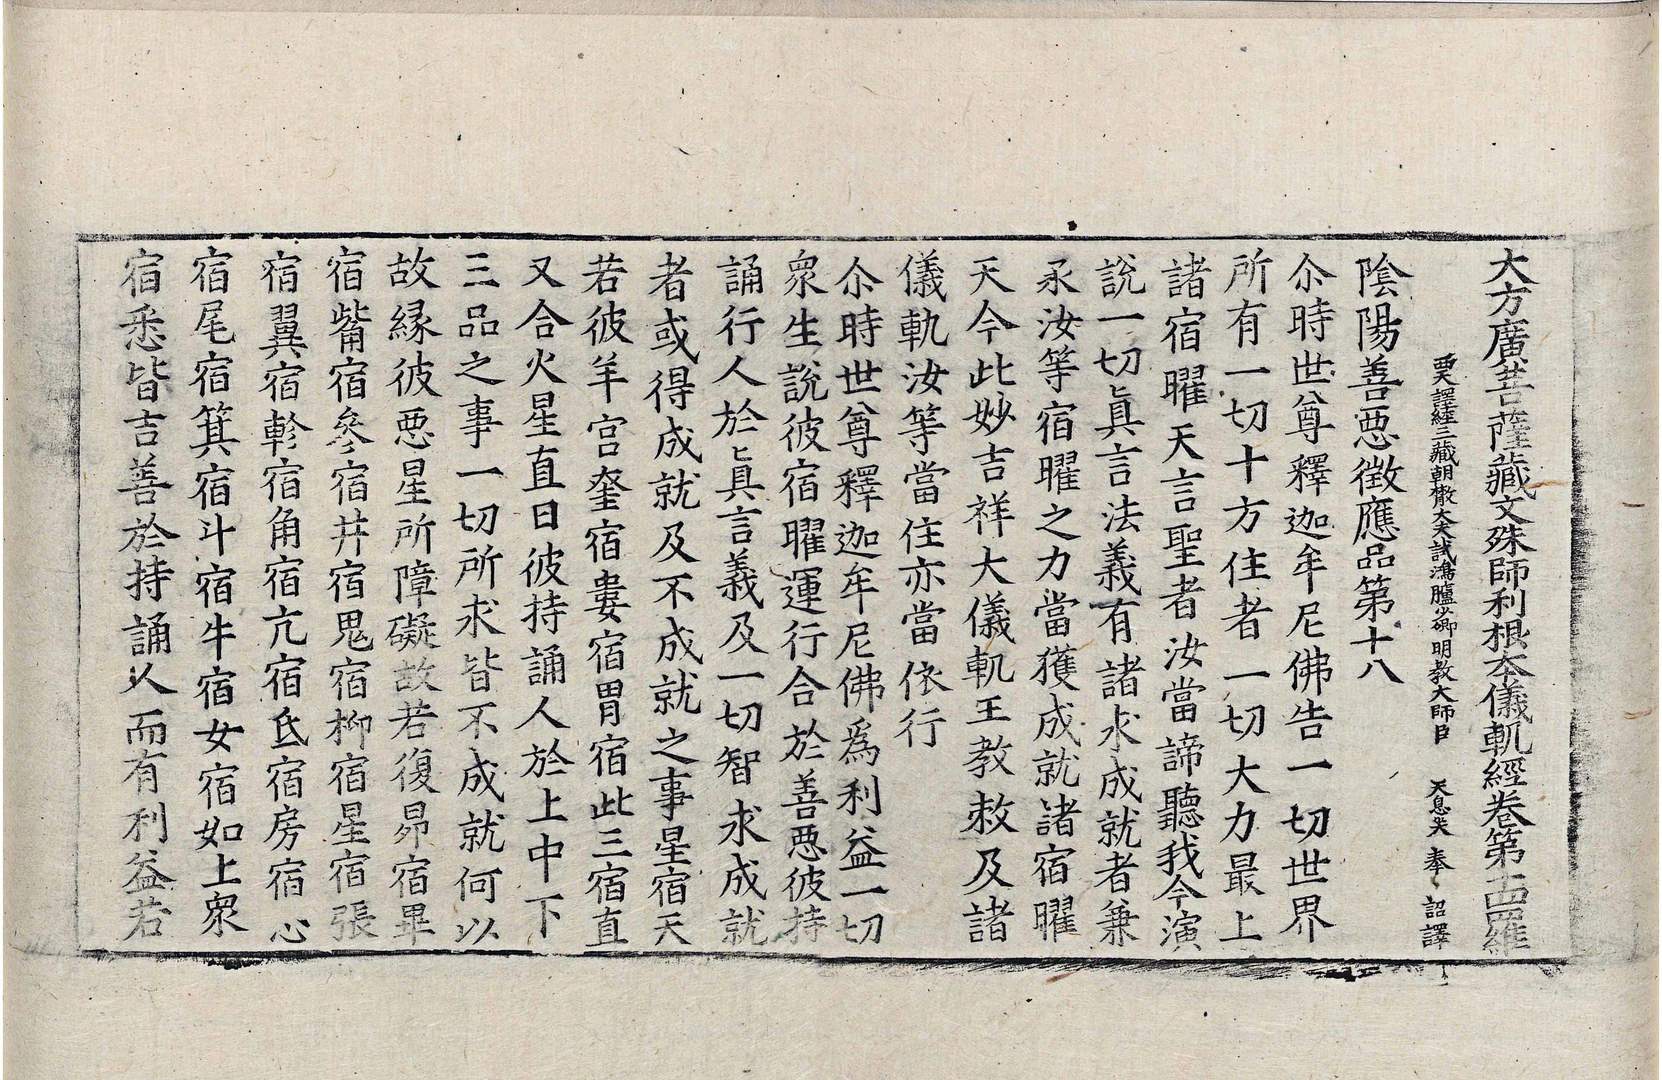 大方廣菩薩藏文殊師利根本儀軌經卷第十四 羅
西天譯經三藏朝散大夫試鴻臚少卿明教大師臣 天息災 奉 詔譯
陰陽善惡徵應品第十八
尒時世尊釋迦牟尼佛告一切世界
所有一切十方住者一切大力最上
諸宿曜天言聖者汝當諦聽我今演
說一切眞言法義有諸求成就者兼
承汝等宿曜之力當獲成就諸宿曜
天今此妙吉祥大儀軌王教敕及諸
儀軌汝等當住亦當依行
尒時世尊釋迦牟尼佛爲利益一切
衆生說彼宿曜運行合於善惡彼持
誦行人於眞言義及一切智求成就
者或得成就及不成就之事星宿天
若彼羊宮奎宿婁宿胃宿此三宿直
又合火星直日彼持誦人於上中下
三品之事一切所求皆不成就何以
故緣彼惡星所障礙故若復昴宿畢
宿觜宿參宿井宿鬼宿柳宿星宿張
宿翼宿軫宿角宿亢宿氐宿房宿心
宿尾宿箕宿斗宿牛宿女宿如上衆
宿悉皆吉善於持誦人而有利益若